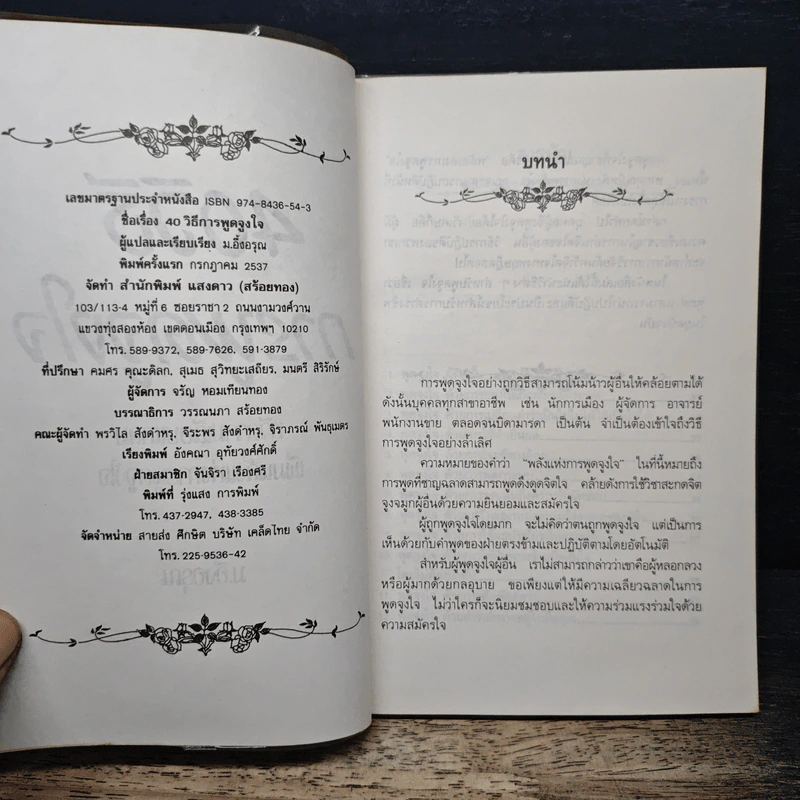 เลขมาตรฐานประจำหนังสือ ISBN 974-8436-54-3
ชื่อเรื่อง 40 วิธีการพูดจูงใจ
ผู้แปลและเรียบเรียง ม.อึ้งอรุณ
พิมพ์ครั้งแรก กรกฎาคม 2537
จัดทำ สำนักพิมพ์ แสงดาว (สร้อยทอง)
103/113-4 หมู่ที่ 6 ซอยราชา 2 ถนนงามวงศ์วาน
แขวงทุ่งสองห้อง เขตดอนเมือง กรุงเทพฯ 10210
โทร. 589-9372, 589-7626, 591-3879
ที่ปรึกษา คมศร คุณะดิลก, สุเมธ สุวิทยะเสถียร, มนตรี สิริรักษ์
ผู้จัดการ จรัญ หอมเทียนทอง
บรรณาธิการ วรรณนภา สร้อยทอง
คณะผู้จัดทำ พรวิไล สังดำหรุ, จีระพร สังดำหรุ, จิราภรณ์ พันธุเมตร
เรียงพิมพ์ อังคณา อุทัยวงศ์ศักดิ์
ฝ่ายสมาชิก จันจิรา เรืองศรี
พิมพ์ที่ รุ่งแสง การพิมพ์
โทร. 437-2947, 438-3385
จัดจำหน่าย สายส่ง ศึกษิต บริษัท เคล็ดไทย จำกัด
โทร. 225-9536-42
บทนำ
การพูดจูงใจอย่างถูกวิธีสามารถโน้มน้าวผู้อื่นให้คล้อยตามได้
ดังนั้นบุคคลทุกสาขาอาชีพ เช่น นักการเมือง ผู้จัดการ อาจารย์
พนักงานขาย ตลอดจนบิดามารดา เป็นต้น จำเป็นต้องเข้าใจถึงวิธี
การพูดจูงใจอย่างล้ำเลิศ
ความหมายของคำว่า “พลังแห่งการพูดจูงใจ” ในที่นี้หมายถึง
การพูดที่ชาญฉลาดสามารถพูดดึงดูดจิตใจ คล้ายดังการใช้วิชาสะกดจิต
จูงจมูกผู้อื่นด้วยความยินยอมและสมัครใจ
ผู้ถูกพูดจูงใจโดยมาก จะไม่คิดว่าตนถูกพูดจูงใจ แต่เป็นการ
เห็นด้วยกับคำพูดของฝ่ายตรงข้ามและปฏิบัติตามโดยอัตโนมัติ
สำหรับผู้พูดจูงใจผู้อื่น เราไม่สามารถกล่าวว่าเขาคือผู้หลอกลวง
หรือผู้มากด้วยกลอุบาย ขอเพียงแต่ให้มีความเฉลียวฉลาดในการ
พูดจูงใจ ไม่ว่าใครก็จะนิยมชมชอบและให้ความร่วมแรงร่วมใจด้วย
ความสมัครใจ